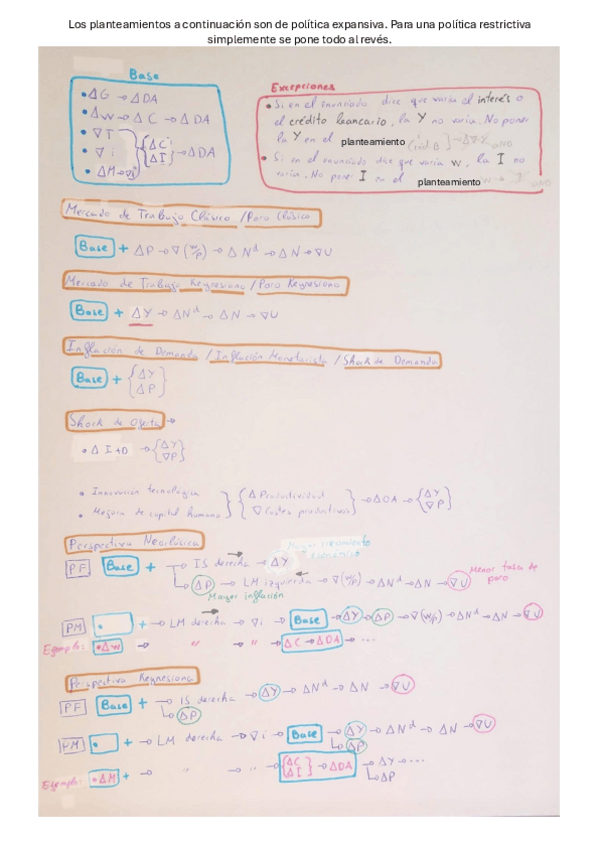 Los planteamientos a continuación son de política expansiva. Para una política restrictiva
simplemente se pone todo al revés.
Base
• ΔG → ΔDA
• Δw → ΔC → ΔDA
• ∇T
• ∇i
{ΔC
ΔI} → ΔDA
• ΔM → ∇i
Excepciones
• Si en el enunciado dice que varía el interés o
el crédito bancario, la Y no varía. No poner
la Y en el planteamiento
• Si en el enunciado dice que varía w, la I no
varía. No poner I en el planteamiento
Mercado de Trabajo Clásico / Paro Clásico
Base + ΔP → ∇(w/p) → ΔNᵈ → ΔN → ∇U
Mercado de Trabajo Keynesiano / Paro Keynesiano
Base + ΔY → ΔNᵈ → ΔN → ∇U
Inflación de Demanda / Inflación Monetarista / Shock de Demanda
Base + {ΔY
ΔP}
Shock de Oferta →
• Δ I+D → {ΔY
∇P}
• Innovación tecnológica
• Mejora de capital humano
} {Δ Productividad
∇ Costes productivos} → ΔOA → {ΔY
∇P}
Perspectiva Neoclásica
Mayor crecimiento
económico
PF Base + → IS derecha → ΔY
ΔP → LM izquierda → ∇(w/p) → ΔNᵈ → ΔN → ∇U
Menor tasa de
paro
Mayor inflación
PM • + → LM derecha → ∇i → Base → ΔY → ΔP → ∇(w/p) → ΔNᵈ → ΔN → ∇U
Ejemplo: • Δw → " → " → ΔC → ΔDA → ...
Perspectiva Keynesiana
PF Base + → IS derecha → ΔY → ΔNᵈ → ΔN → ∇U
ΔP
PM • + → LM derecha → ∇i → Base → ΔY → ΔNᵈ → ΔN → ∇U
ΔP
Ejemplo: • ΔM + → " → " → {ΔC
ΔI} → ΔDA → ΔY → ...
ΔP